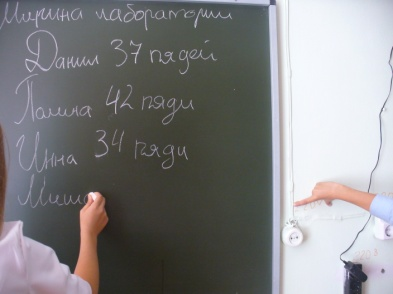 Ширина лаборатории
Данил 37 пядей
Полина 42 пяди
Инна 34 пяди
Миш